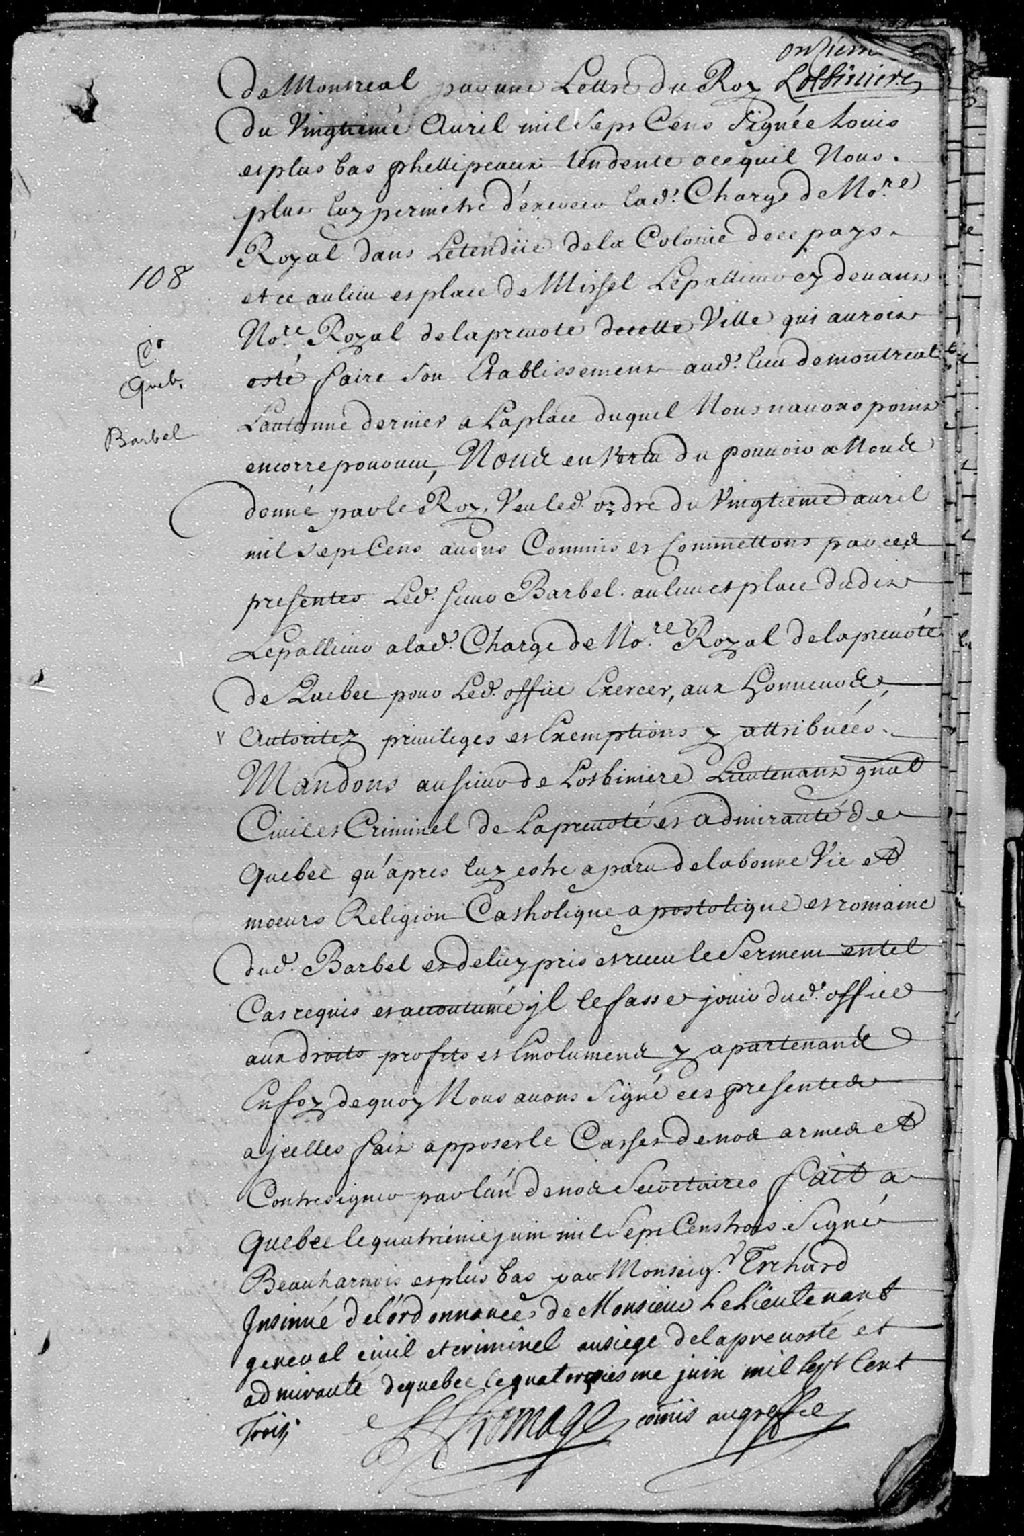 onziem
Lotbiniere
de Montreal par une Lettre du Roy
du Vingtiéme Auril mil Sept Cens Signée Louis
et plus bas phellipeaux tendente a ce quil Nous
plut luy permettre d'exercer lad.t Charge de No.re
Royal dans L'etendüe de la Colonie de ce pays
et ce au lieu et place de Michel Lepallieur cy deuant
No.re Royal de la preuoté de cette Ville qui auroit
esté faire son Etablissement aud.t lieu de montreal
Lautonne dernier a La place duquel Nous n'auons point
encorre pourueu, Nous en Vertu du pouuoir a Nous
donné par le Roy, Veu led.t ordre du Vingtieme d'auril
mil Sept Cens auons Commis et Commettons par ces
presentes Led.t sieur Barbel au lieu et place dudit
Lepallieur a lad.t Charge de No.re Royal de la preuoté
de Quebec pour Led.t office Exercer, aux honneurs
Autoritez priuileges et Exemptions y attribuées.
Mandons au sieur de Lotbiniere Lieutenant gnâl
Ciuil et Criminel de La preuoté et admirauté de
Quebec qu'apres luy estre aparu de la bonne Vie et
moeurs Religion Catholique apostolique et romaine
dud.t Barbel et de luy pris et receu le Serment en tel
Cas requis et accoutumé jl le fasse jouir dud.t office
aux droits profits et Emoluments y apartenans
En foy de quoy Nous auons Signé ces presentes
a jcelles fait apposer le Cachet de nos armes et
Contresigner par l'un de nos Secretaires fait a
Quebec le quatriéme juin mil Sept Cens trois Signé
Beauharnois et plus bas par Monseig.r Trehard
Jnsinué de l'ordonnance de Monsieur Le Lieutenant
general ciuil et criminel au siege de la preuosté et
admirauté de quebec le quatorziesme juin mil sept Cent
Trois
Rromage comis au greffe
108
Queb.
Barbel